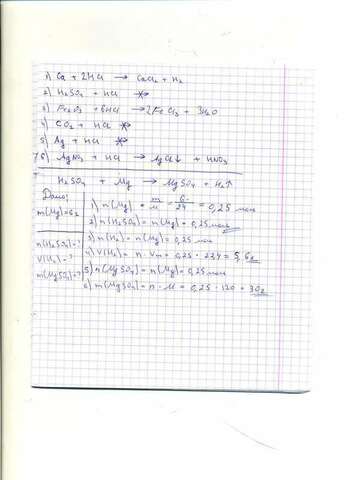 1) Ca + 2HCl → CaCl2 + H2
2) H2SO4 + HCl ↛
3) Fe2O3 + 6HCl → 2FeCl3 + 3H2O
4) CO2 + HCl ↛
5) Ag + HCl ↛
6) AgNO3 + HCl → AgCl↓ + HNO3
H2SO4 + Mg → MgSO4 + H2↑
Дано:
m(Mg)=6г
n(H2SO4)=?
V(H2)=?
m(MgSO4)=?
1) n(Mg) = m/M = 6/24 = 0,25 моль
2) n(H2SO4) = n(Mg) = 0,25 моль
3) n(H2) = n(Mg) = 0,25 моль
4) V(H2) = n · Vm = 0,25 · 22,4 = 5,6
5) n(MgSO4) = n(Mg) = 0,25 моль
6) m(MgSO4) = n · M = 0,25 · 120 = 30г